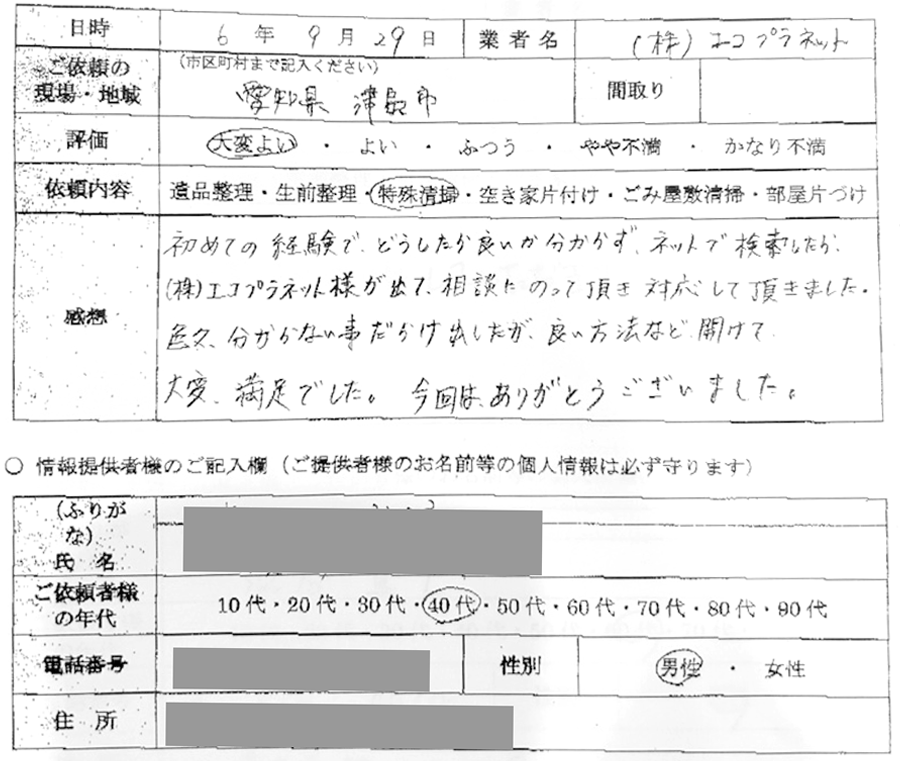 日時 6年 9月 29日 業者名 (株)エコプラネット
ご依頼の現場・地域 (市区町村まで記入ください) 愛知県 津島市 間取り
評価 大変よい ・ よい ・ ふつう ・ やや不満 ・ かなり不満
依頼内容 遺品整理・生前整理・特殊清掃・空き家片付け・ごみ屋敷清掃・部屋片づけ
感想
初めての経験で、どうしたら良いか分からず、ネットで検索したら、
(株)エコプラネット様が出て、相談にのって頂き対応して頂きました。
色々、分からない事だらけ出したが、良い方法など、聞けて
大変、満足でした。 今回は、ありがとうございました。
○ 情報提供者様のご記入欄(ご提供者様のお名前等の個人情報は必ず守ります)
(ふりがな)
氏 名
ご依頼者様の年代 10代・20代・30代・40代・50代・60代・70代・80代・90代
電話番号 性別 男性 ・ 女性
住 所